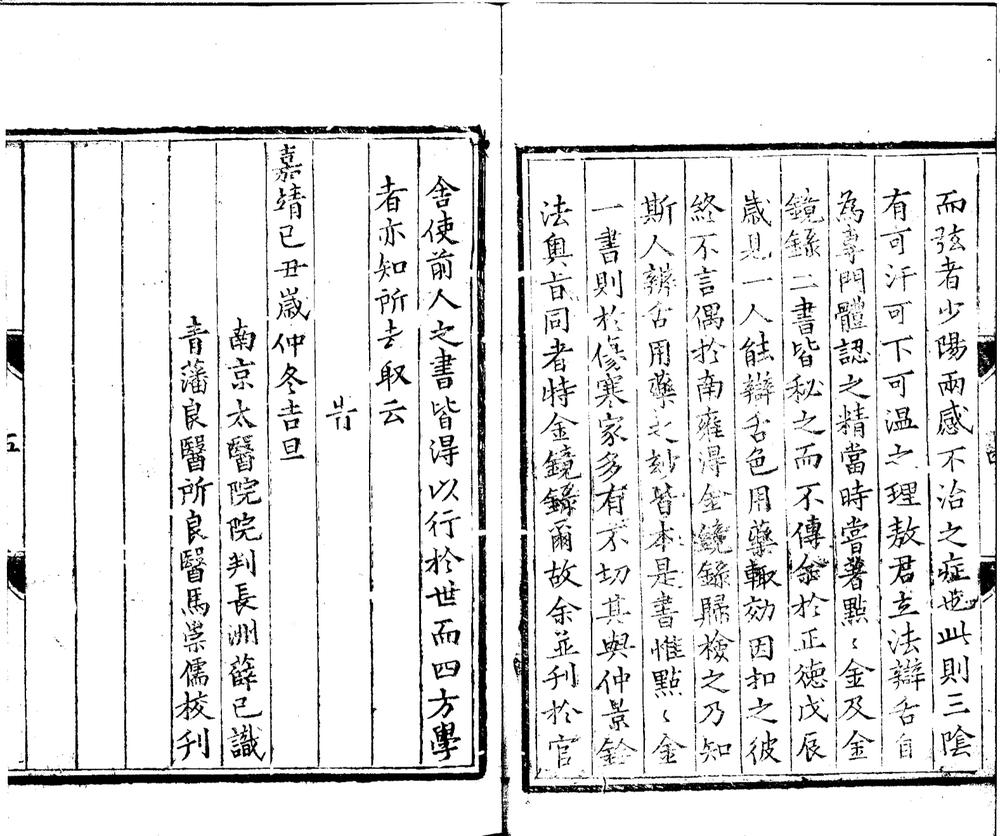 而弦者少陽兩感不治之症也此則三陰
有可汗可下可温之理敖君立法辯舌自
為專門體認之精當時嘗著點〻金及金
鏡錄二書皆秘之而不傳余於正德戊辰
歲見一人能辯舌色用藥輒効因扣之彼
終不言偶於南雍淂金鏡錄歸檢之乃知
斯人辨舌用藥之玅皆本是書惟點〻金
一書則於傷寒家多有不切其與仲景鈐
法奥旨同者特金鏡錄爾故余並刋於官
舍使前人之書皆淂以行於世而四方學
者亦知所去取云
旹
嘉靖己丑歲仲冬吉旦
南京太醫院院判長洲薛己識
青藩良醫所良醫馬崇儒校刋
五